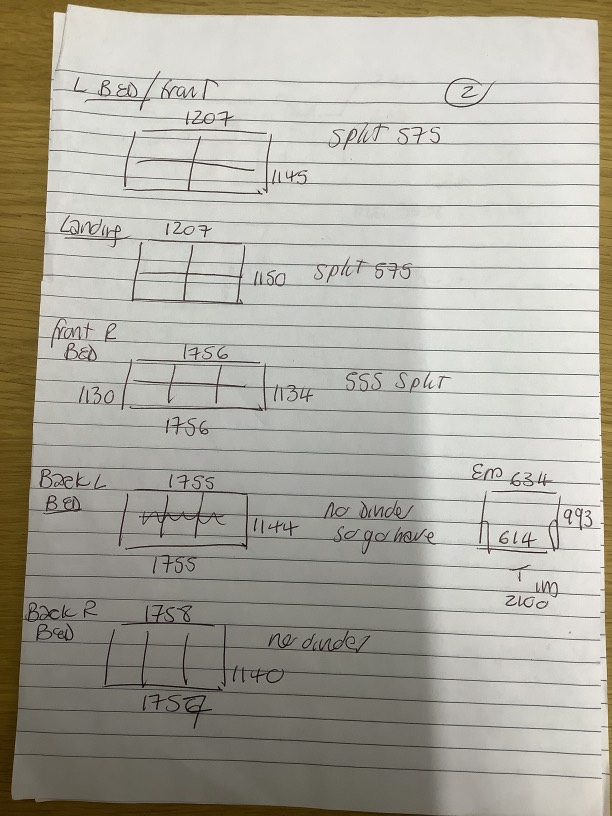 L BED/front
2
1207
split 575
1145
Landing
1207
1150
split 575
front R
BED
1756
1130
1134
555 split
1756
Back L
BED
1755
1144
no divider
so go have
1755
634
993
614
2100
Back R
BED
1758
no divider
1140
1757